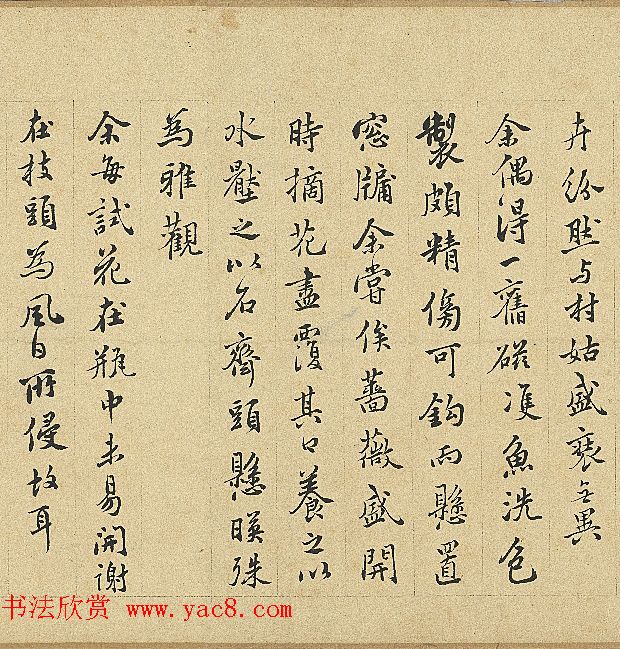 卉紛然与村姑盛裹無異
余偶得一舊磁準魚洗色
製頗精傍可鈎而懸置
窓牖余嘗俟薔薇盛開
時摘花盡覆其口養之以
水壓之以石齋頭懸暎殊
為雅觀
余每試花在瓶中未易開謝
在枝頭為風日所侵故耳
书法欣赏 www.yac8.com